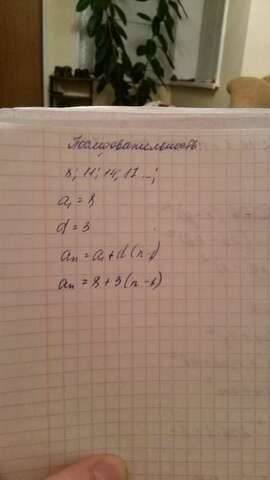 Последовательность:
8; 11; 14; 17 ...;
a₁ = 8
d = 3
aₙ = a₁ + d(n-1)
aₙ = 8 + 3(n-1)